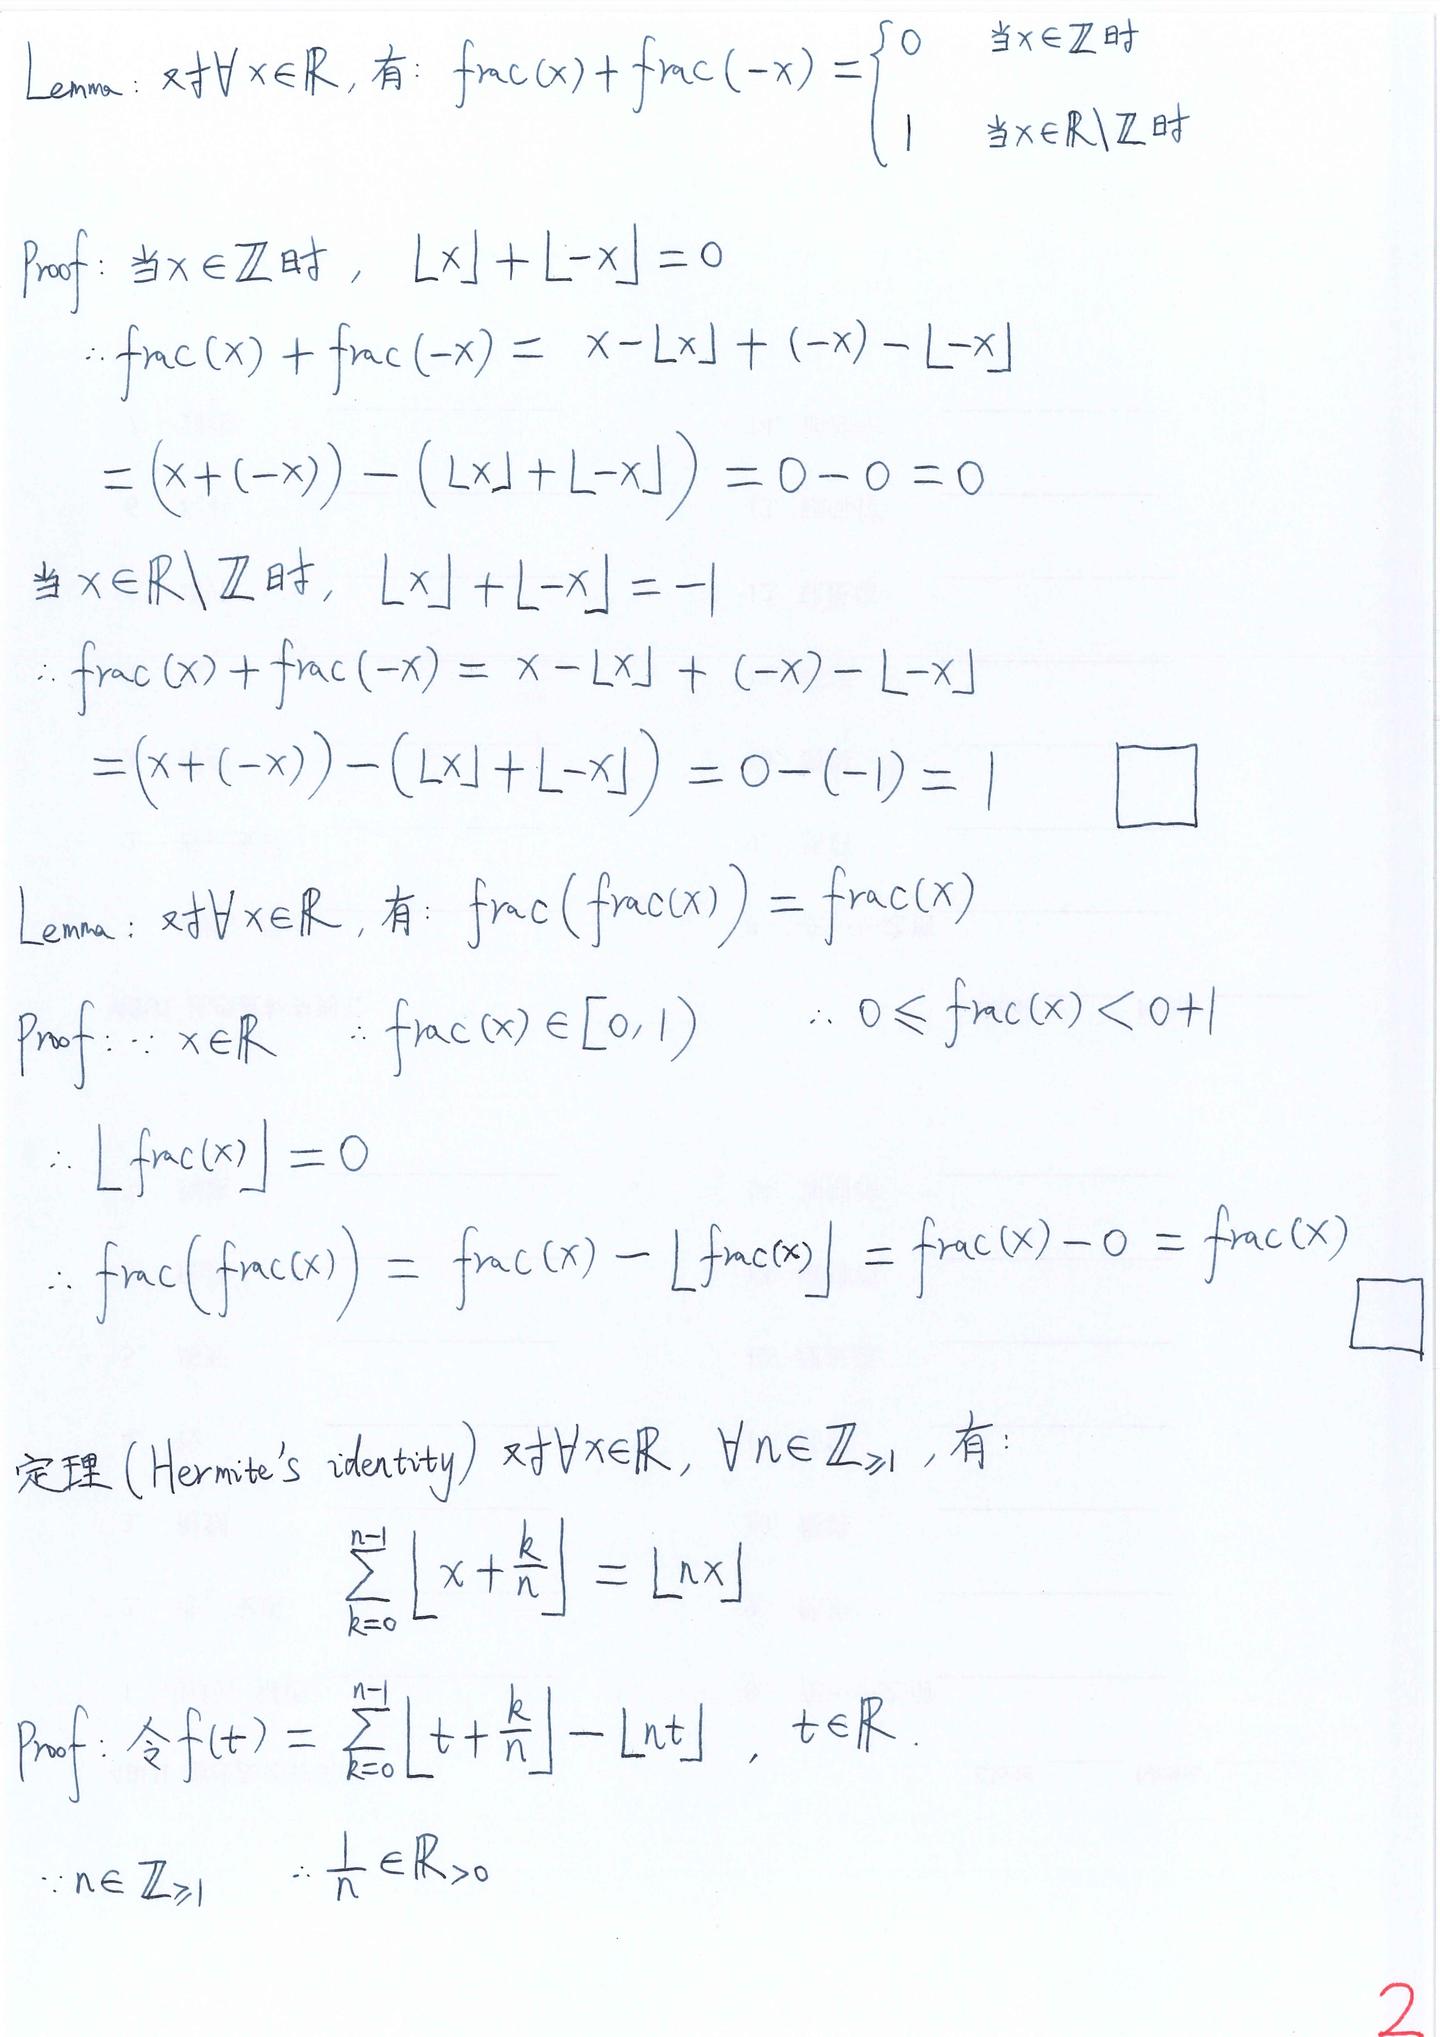 Lemma: 对∀x∈ℝ, 有: frac(x)+frac(-x)={0 当x∈ℤ时
1 当x∈ℝ\ℤ时
Proof: 当x∈ℤ时, ⌊x⌋+⌊-x⌋=0
∴frac(x)+frac(-x)= x-⌊x⌋+(-x)-⌊-x⌋
=(x+(-x))-(⌊x⌋+⌊-x⌋)=0-0=0
当x∈ℝ\ℤ时, ⌊x⌋+⌊-x⌋=-1
∴frac(x)+frac(-x)= x-⌊x⌋+(-x)-⌊-x⌋
=(x+(-x))-(⌊x⌋+⌊-x⌋)=0-(-1)=1 □
Lemma: 对∀x∈ℝ, 有: frac(frac(x))=frac(x)
Proof: ∵ x∈ℝ ∴frac(x)∈[0,1) ∴0≤frac(x)<0+1
∴⌊frac(x)⌋=0
∴frac(frac(x))=frac(x)-⌊frac(x)⌋=frac(x)-0=frac(x)
□
定理(Hermite's identity) 对∀x∈ℝ, ∀n∈ℤ≥1, 有:
∑_{k=0}^{n-1} ⌊x+k/n⌋=⌊nx⌋
Proof: 令f(t)=∑_{k=0}^{n-1} ⌊t+k/n⌋-⌊nt⌋, t∈ℝ.
∵n∈ℤ≥1 ∴1/n∈ℝ>0
2